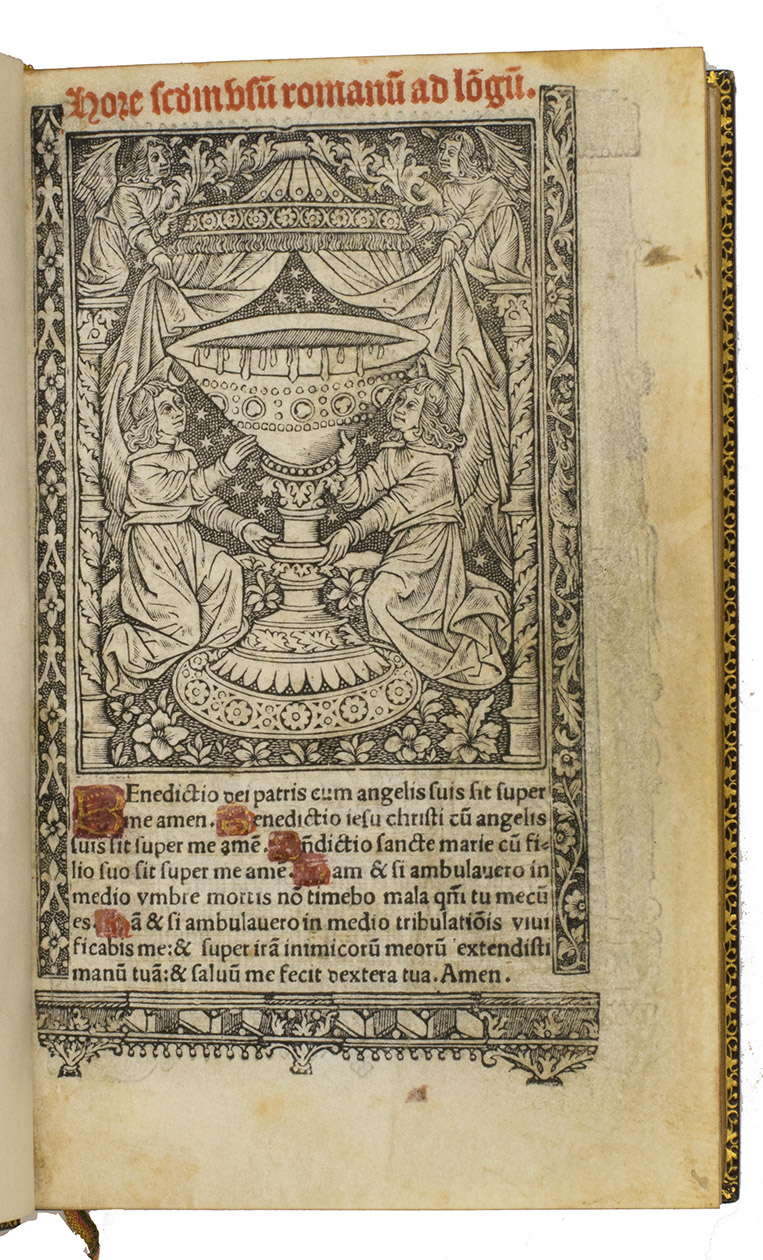 Hore scd'm vsū romanū ad lōgū.
BEnedictio dei patris cum angelis suis sit super
me amen. Benedictio iesu christi cū angelis
suis sit super me amē. Bn̄dictio sancte marie cū fi-
lio suo sit super me amē. Nam & si ambulauero in
medio vmbre mortis nō timebo mala qm̄ tu mecū
es. Nā & si ambulauero in medio tribulatiōis viui
ficabis me:& super irā inimicorū meorū extendisti
manū tuā:& saluū me fecit dextera tua. Amen.